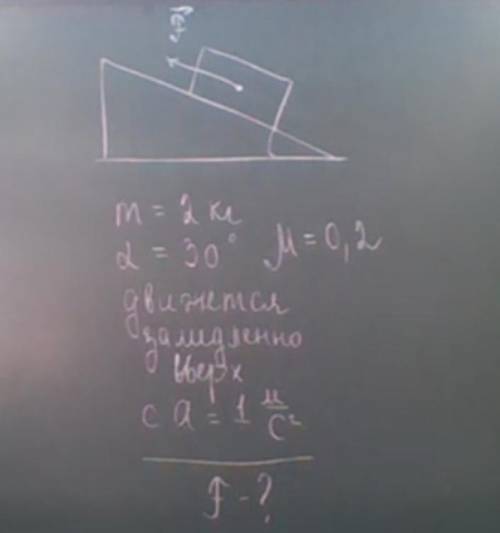 m = 2 кг
α = 30° μ = 0,2
движется
замидленно
вверх
с a = 1 м/с²
F - ?